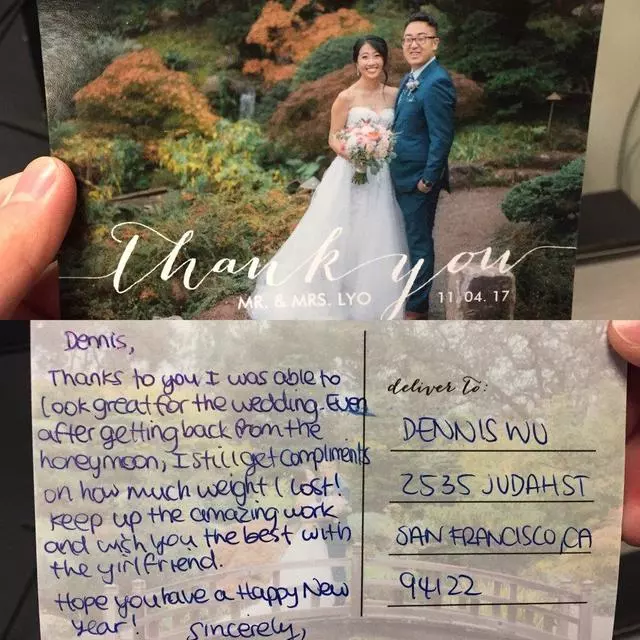 Thank you
MR. & MRS. LYO 11.04.17
Dennis,
Thanks to you I was able to
look great for the wedding. Even
after getting back from the
honeymoon, I still get compliments
on how much weight I lost!
Keep up the amazing work
and wish you the best with
the girlfriend.
Hope you have a Happy New
Year!
Sincerely,
deliver to:
DENNIS WU
2535 JUDAH ST
SAN FRANCISCO, CA
94122